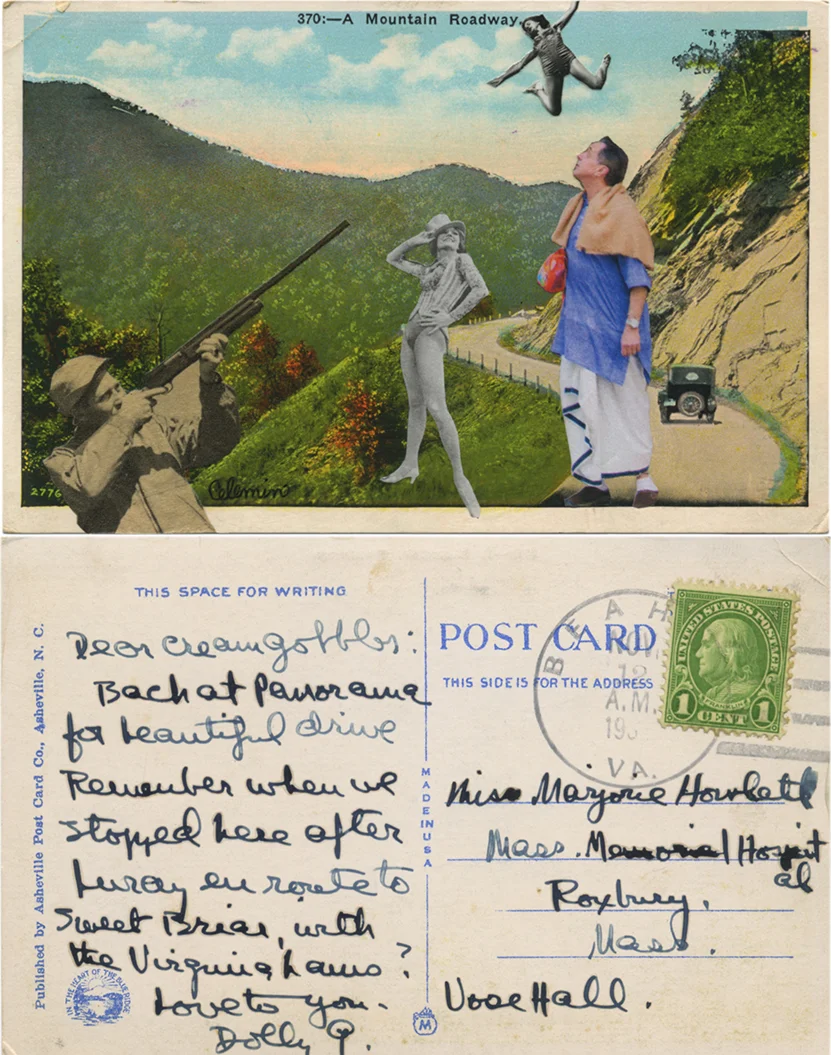 370:—A Mountain Roadway.
2776
THIS SPACE FOR WRITING
Dear Creamgobbles:
Back at Panorama
for beautiful drive
Remember when we
stopped here after
Luray en route to
Sweet Briar, with
the Virginia hams?
Love to you.
Dolly
Published by Asheville Post Card Co., Asheville, N. C.
IN THE HEART OF THE BLUE RIDGE
MADE IN USA
M
POST CARD
THIS SIDE IS FOR THE ADDRESS
NOV
12
A.M.
VA.
UNITED STATES POSTAGE
FRANKLIN
1 CENT 1
Miss Marjorie
Mass. Memorial Hospital
Roxbury,
Mass.
Vose Hall.